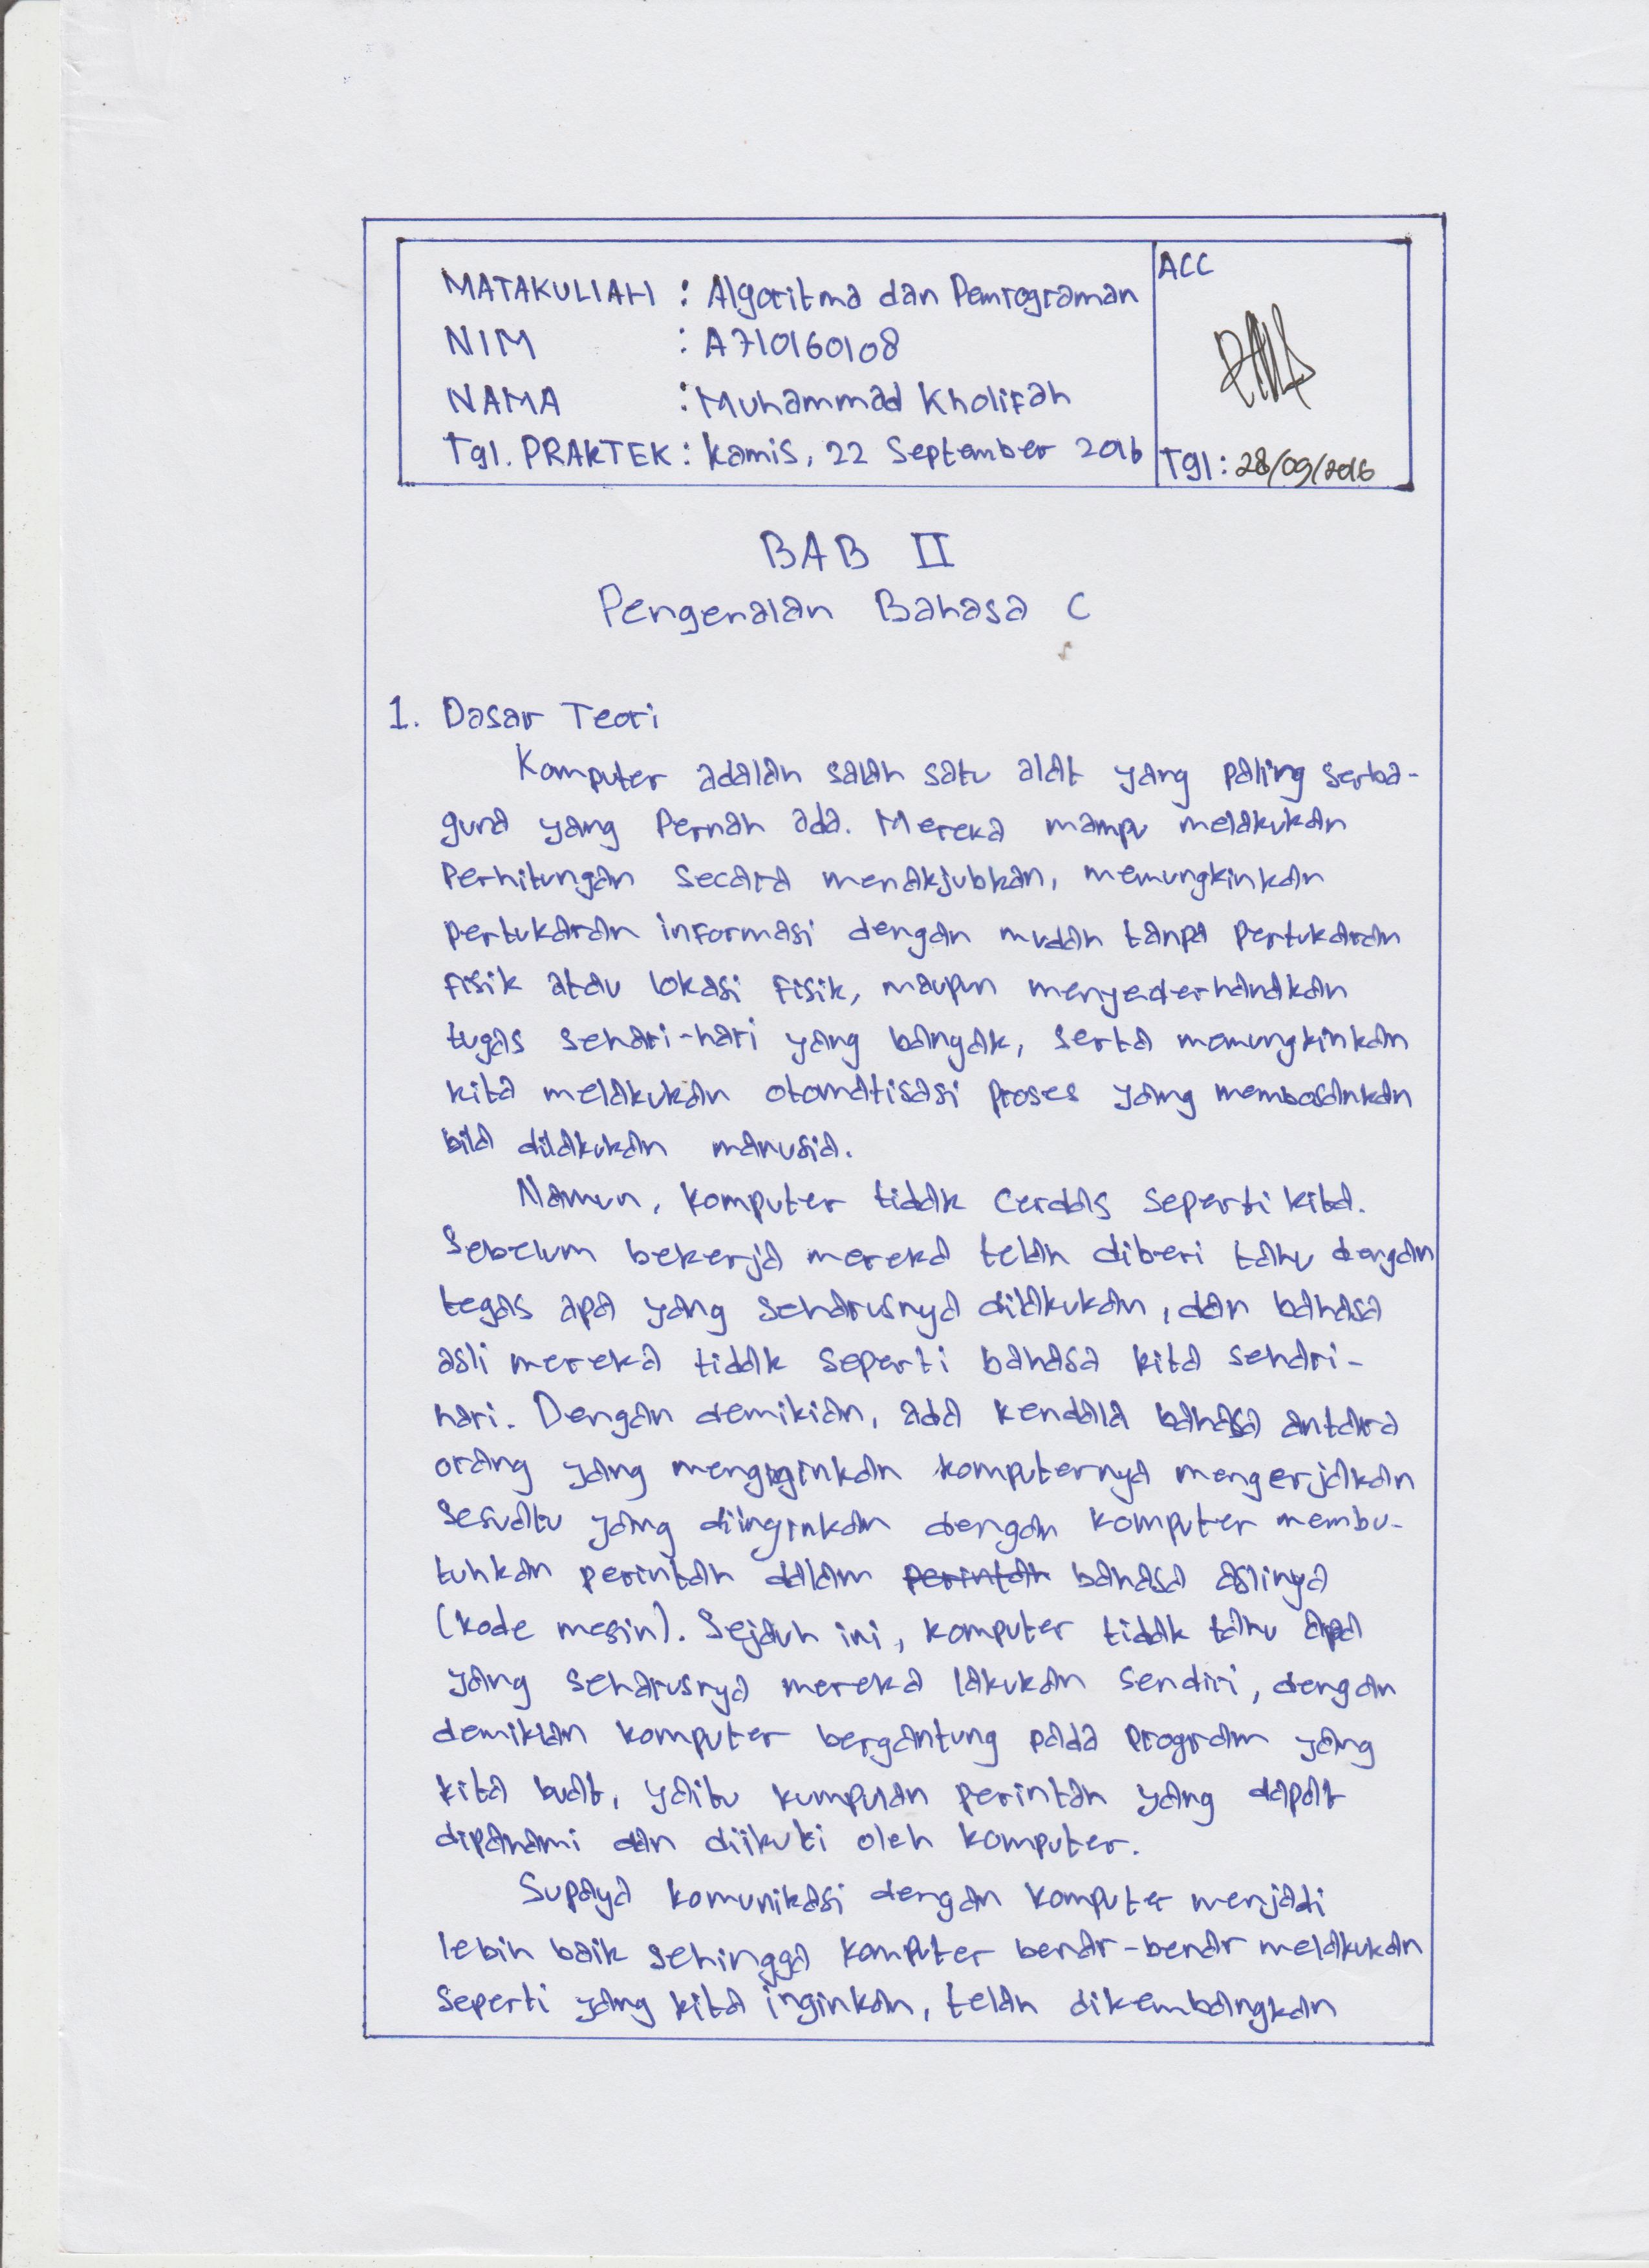 MATAKULIAH : Algoritma dan Pemrograman
NIM : A710160108
NAMA : Muhammad Kholifah
Tgl. PRAKTEK : Kamis, 22 September 2016
ACC
Tgl : 28/09/2016
BAB II
Pengenalan Bahasa C
1. Dasar Teori
Komputer adalah salah satu alat yang paling serba-
guna yang Pernah ada. Mereka mampu melakukan
Perhitungan secara menakjubkan, memungkinkan
pertukaran informasi dengan mudah tanpa pertukaran
fisik atau lokasi fisik, maupun menyederhanakan
tugas sehari-hari yang bangak, serta memungkinkan
kita melakukan otomatisasi proses yang membosankan
bila dilakukan manusia.
Namun, komputer tidak cerdas seperti kita.
Sebelum bekerja mereka telah diberi tahu dengan
tegas apa yang seharusnya dilakukan, dan bahasa
asli mereka tidak seperti bahasa kita sehari-
hari. Dengan demikian, ada kendala bahasa antara
orang yang menginginkan komputernya mengerjakan
Sesuatu yang diinginkan dengan komputer membu-
tuhkan perintah dalam perintah bahasa aslinya
(kode mesin). Sejauh ini, komputer tidak tahu apa
yang seharusnya mereka lakukan sendiri, dengan
demikian komputer bergantung pada program yang
kita buat, yaitu kumpulan perintah yang dapat
dipahami dan diikuti oleh komputer.
Supaya komunikasi dengan komputer menjadi
lebih baik sehingga komputer benar-benar melakukan
seperti yang kita inginkan, telah dikembangkan